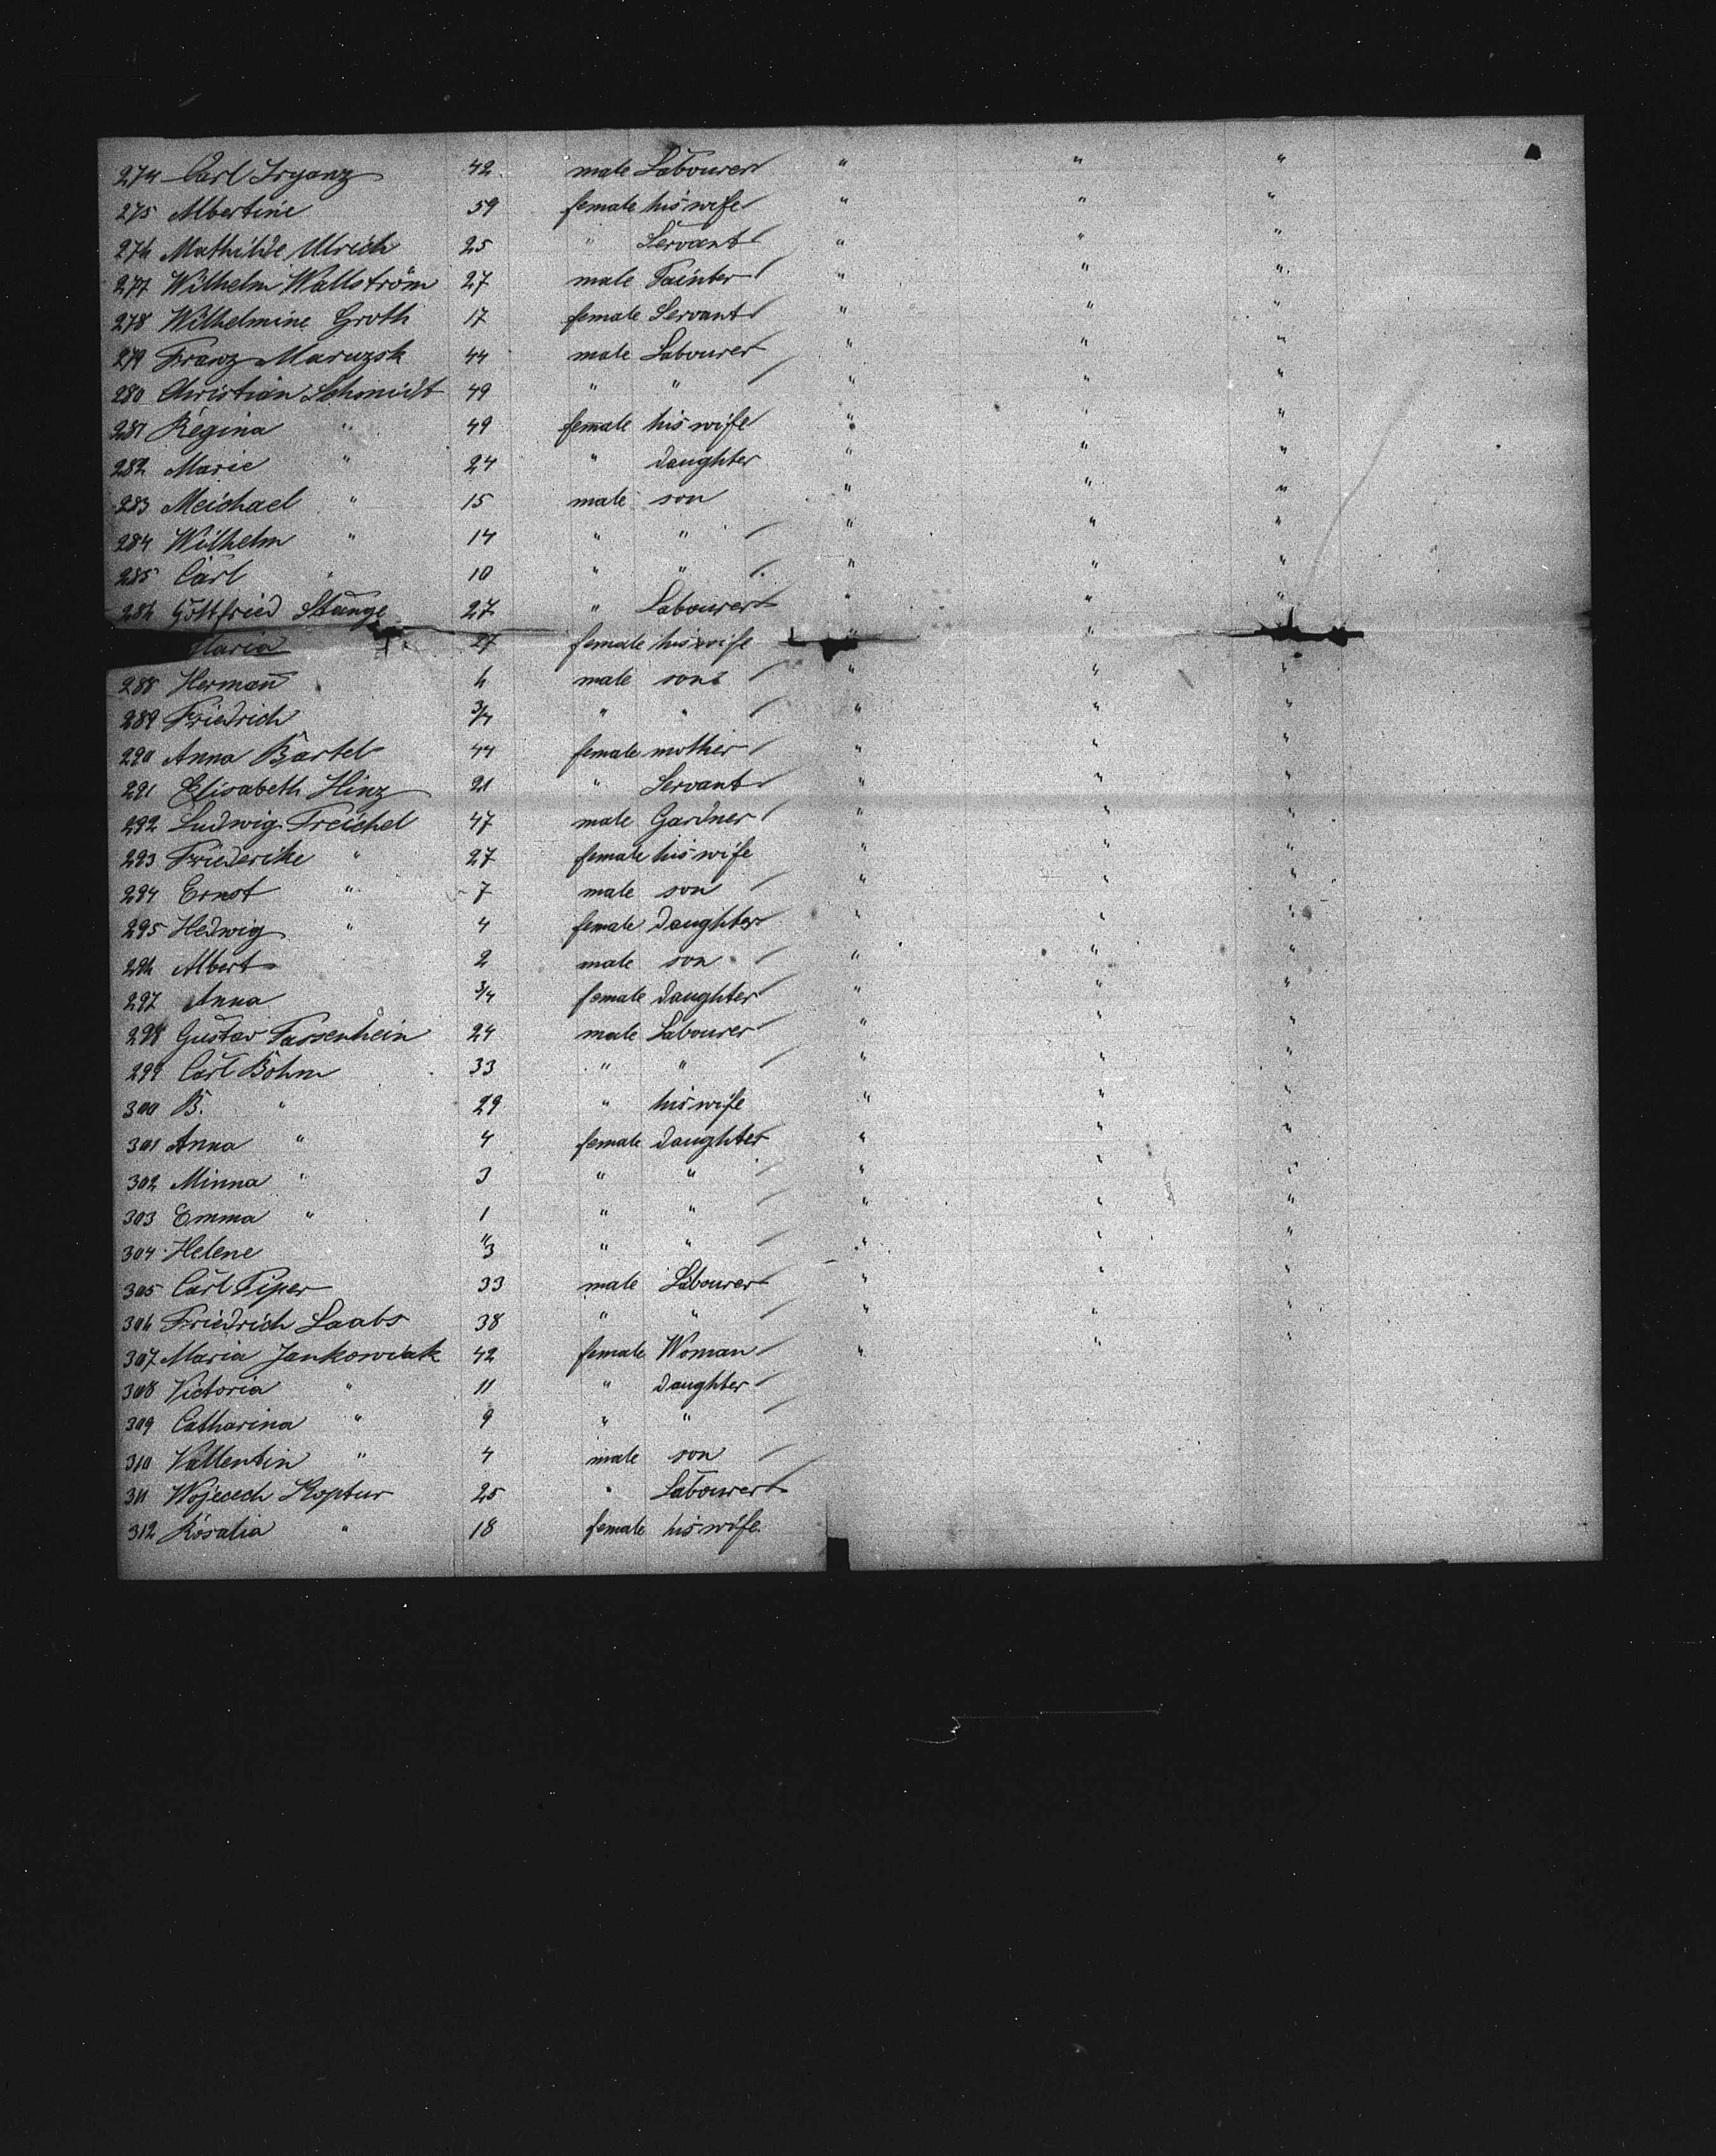 274 Carl Tryanz 42 male Labourer " " "
275 Albertine 59 female his wife " " "
276 Mathilde Ulrich 25 " Servant " " "
277 Wilhelm Wallström 27 male Painter " " "
278 Wilhelmine Groth 17 female Servant " " "
279 Franz Maruzsk 44 male Labourer " " "
280 Christian Schmidt 49 " " " " "
281 Regina " 49 female his wife " " "
282 Marie " 24 " daughter " " "
283 Meichael " 15 male son " " "
284 Wilhelm " 14 " " " " "
285 Carl " 10 " " " " "
286 Gottfried Stange 27 " Labourer " " "
Maria 27 female his wife " "
288 Hermann̄ 6 male son " " "
289 Friedrich 3/4 " " " " "
290 Anna Bartel 44 female mother " " "
291 Elisabeth Hinz 21 " Servant " " "
292 Ludwig Treichel 47 male Gardner " " "
293 Friederike " 27 female his wife " " "
294 Ernst " 7 male son " " "
295 Hedwig " 4 female daughter " " "
296 Albert 2 male son " " "
297 Anna 3/4 female daughter " " "
298 Gustav Fassenhein 24 male Labourer " " "
299 Carl Böhm 33 " " " " "
300 B. " 29 " his wife " " "
301 Anna " 4 female daughter " " "
302 Minna " 3 " " " " "
303 Emma " 1 " " " " "
304 Helene " " " " "
305 Carl Piper 33 male Labourer " " "
306 Friedrich Laabs 38 " " " " "
307 Maria Jankowiak 42 female Woman " " "
308 Victoria " 11 " daughter
309 Catharina " 9 " "
310 Vallentin " 4 male son
311 Wojecech Koptur 25 " Labourer
312 Rosalia " 18 female his wife